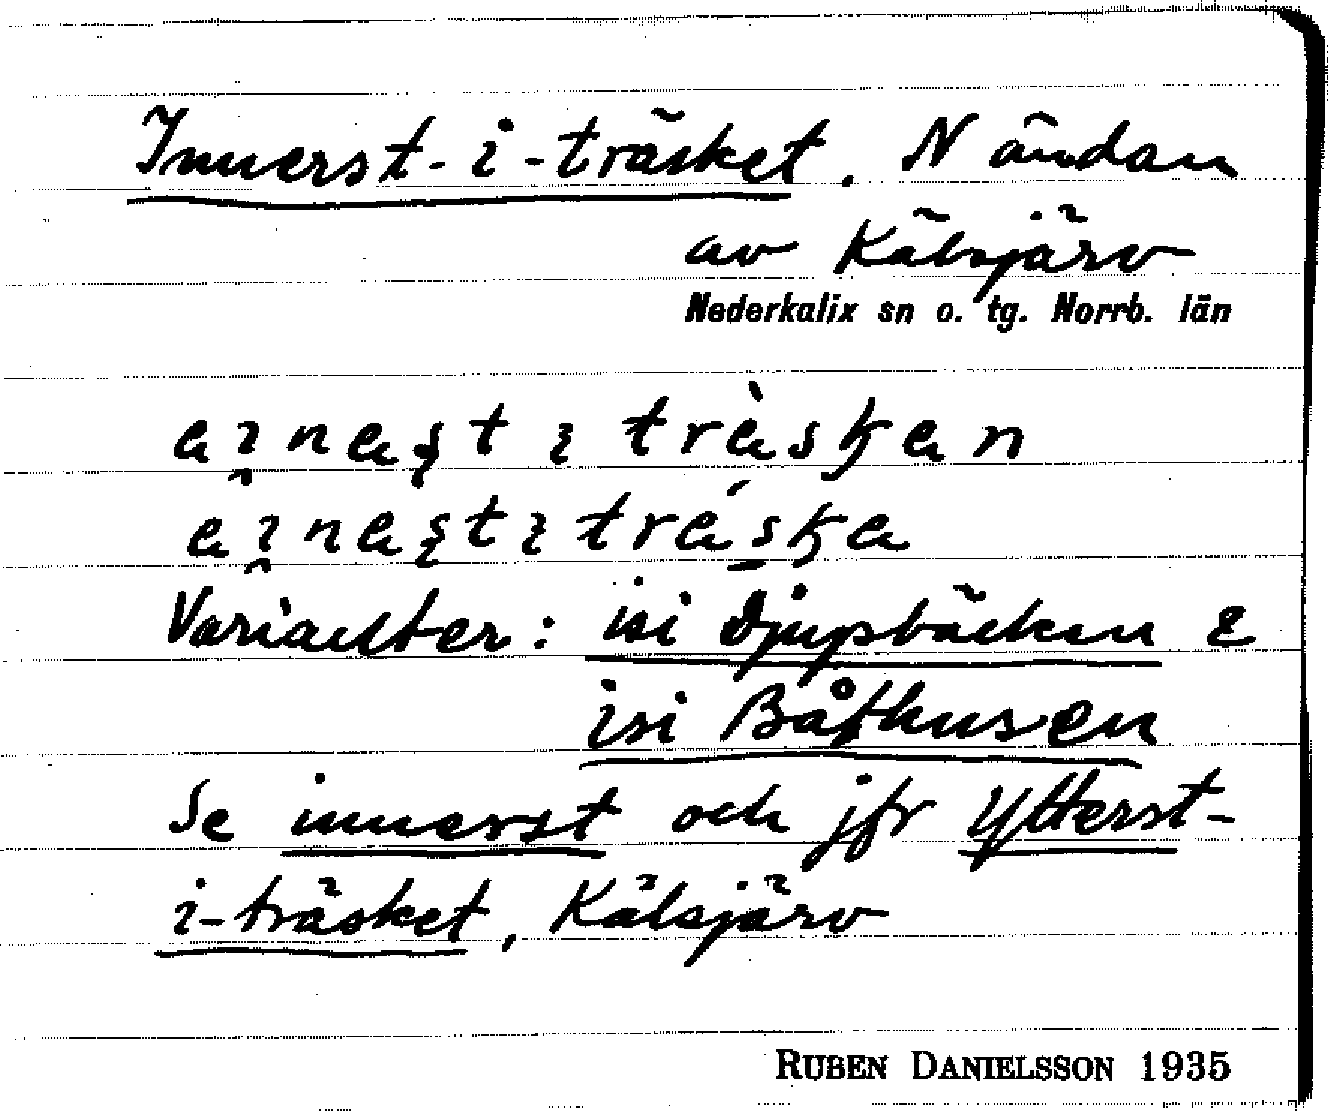 Innerst-i-träsket. N ändan
av Kälsjärv
Nederkalix sn o. tg. Norrb. län
Varianter: isi Djupbäcken &
isi Båthusen
Se innerst och jfr Ytterst-
i-träsket, Kälsjärv
RUBEN DANIELSSON 1935